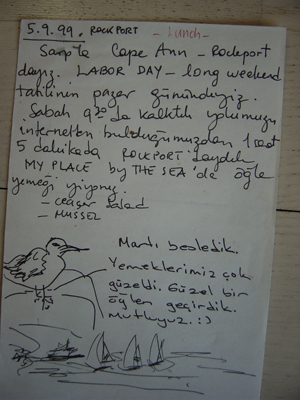 5.9.99. ROCKPORT - Lunch -
Cape Ann - Rockport
dayız. LABOR DAY - long weekend
tatilinin pazar günündeyiz.
Sabah 9²⁰'da kalktık yolumuzu
internetten bulduğumuzdan 1 saat
5 dakikada ROCKPORT'daydık
MY PLACE by THE SEA'de öğle
yemeği yiyoruz.
- Ceaser Salad
- MUSSEL
Martı besledik.
Yemeklerimiz çok
güzeldi. Güzel bir
öğlen geçirdik.
Mutluyuz. :)